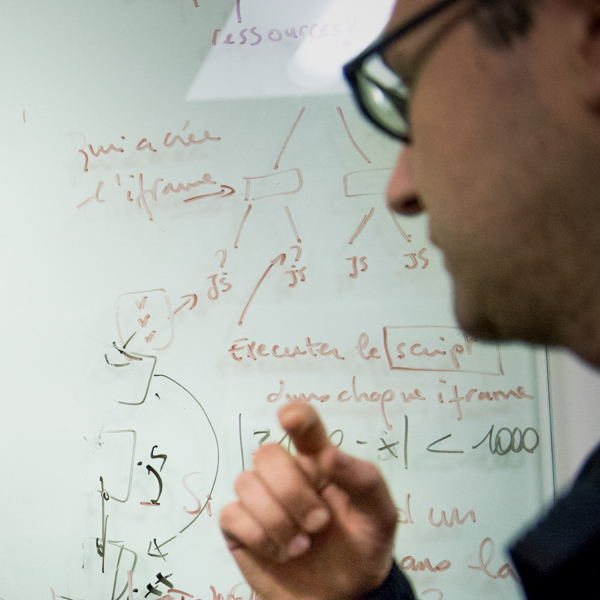 ressources
qui a crée
l'iframe
?
js
?
js
js
js
Executer le script
dans chaque iframe
- x| < 1000
js
Si
d un
dans la